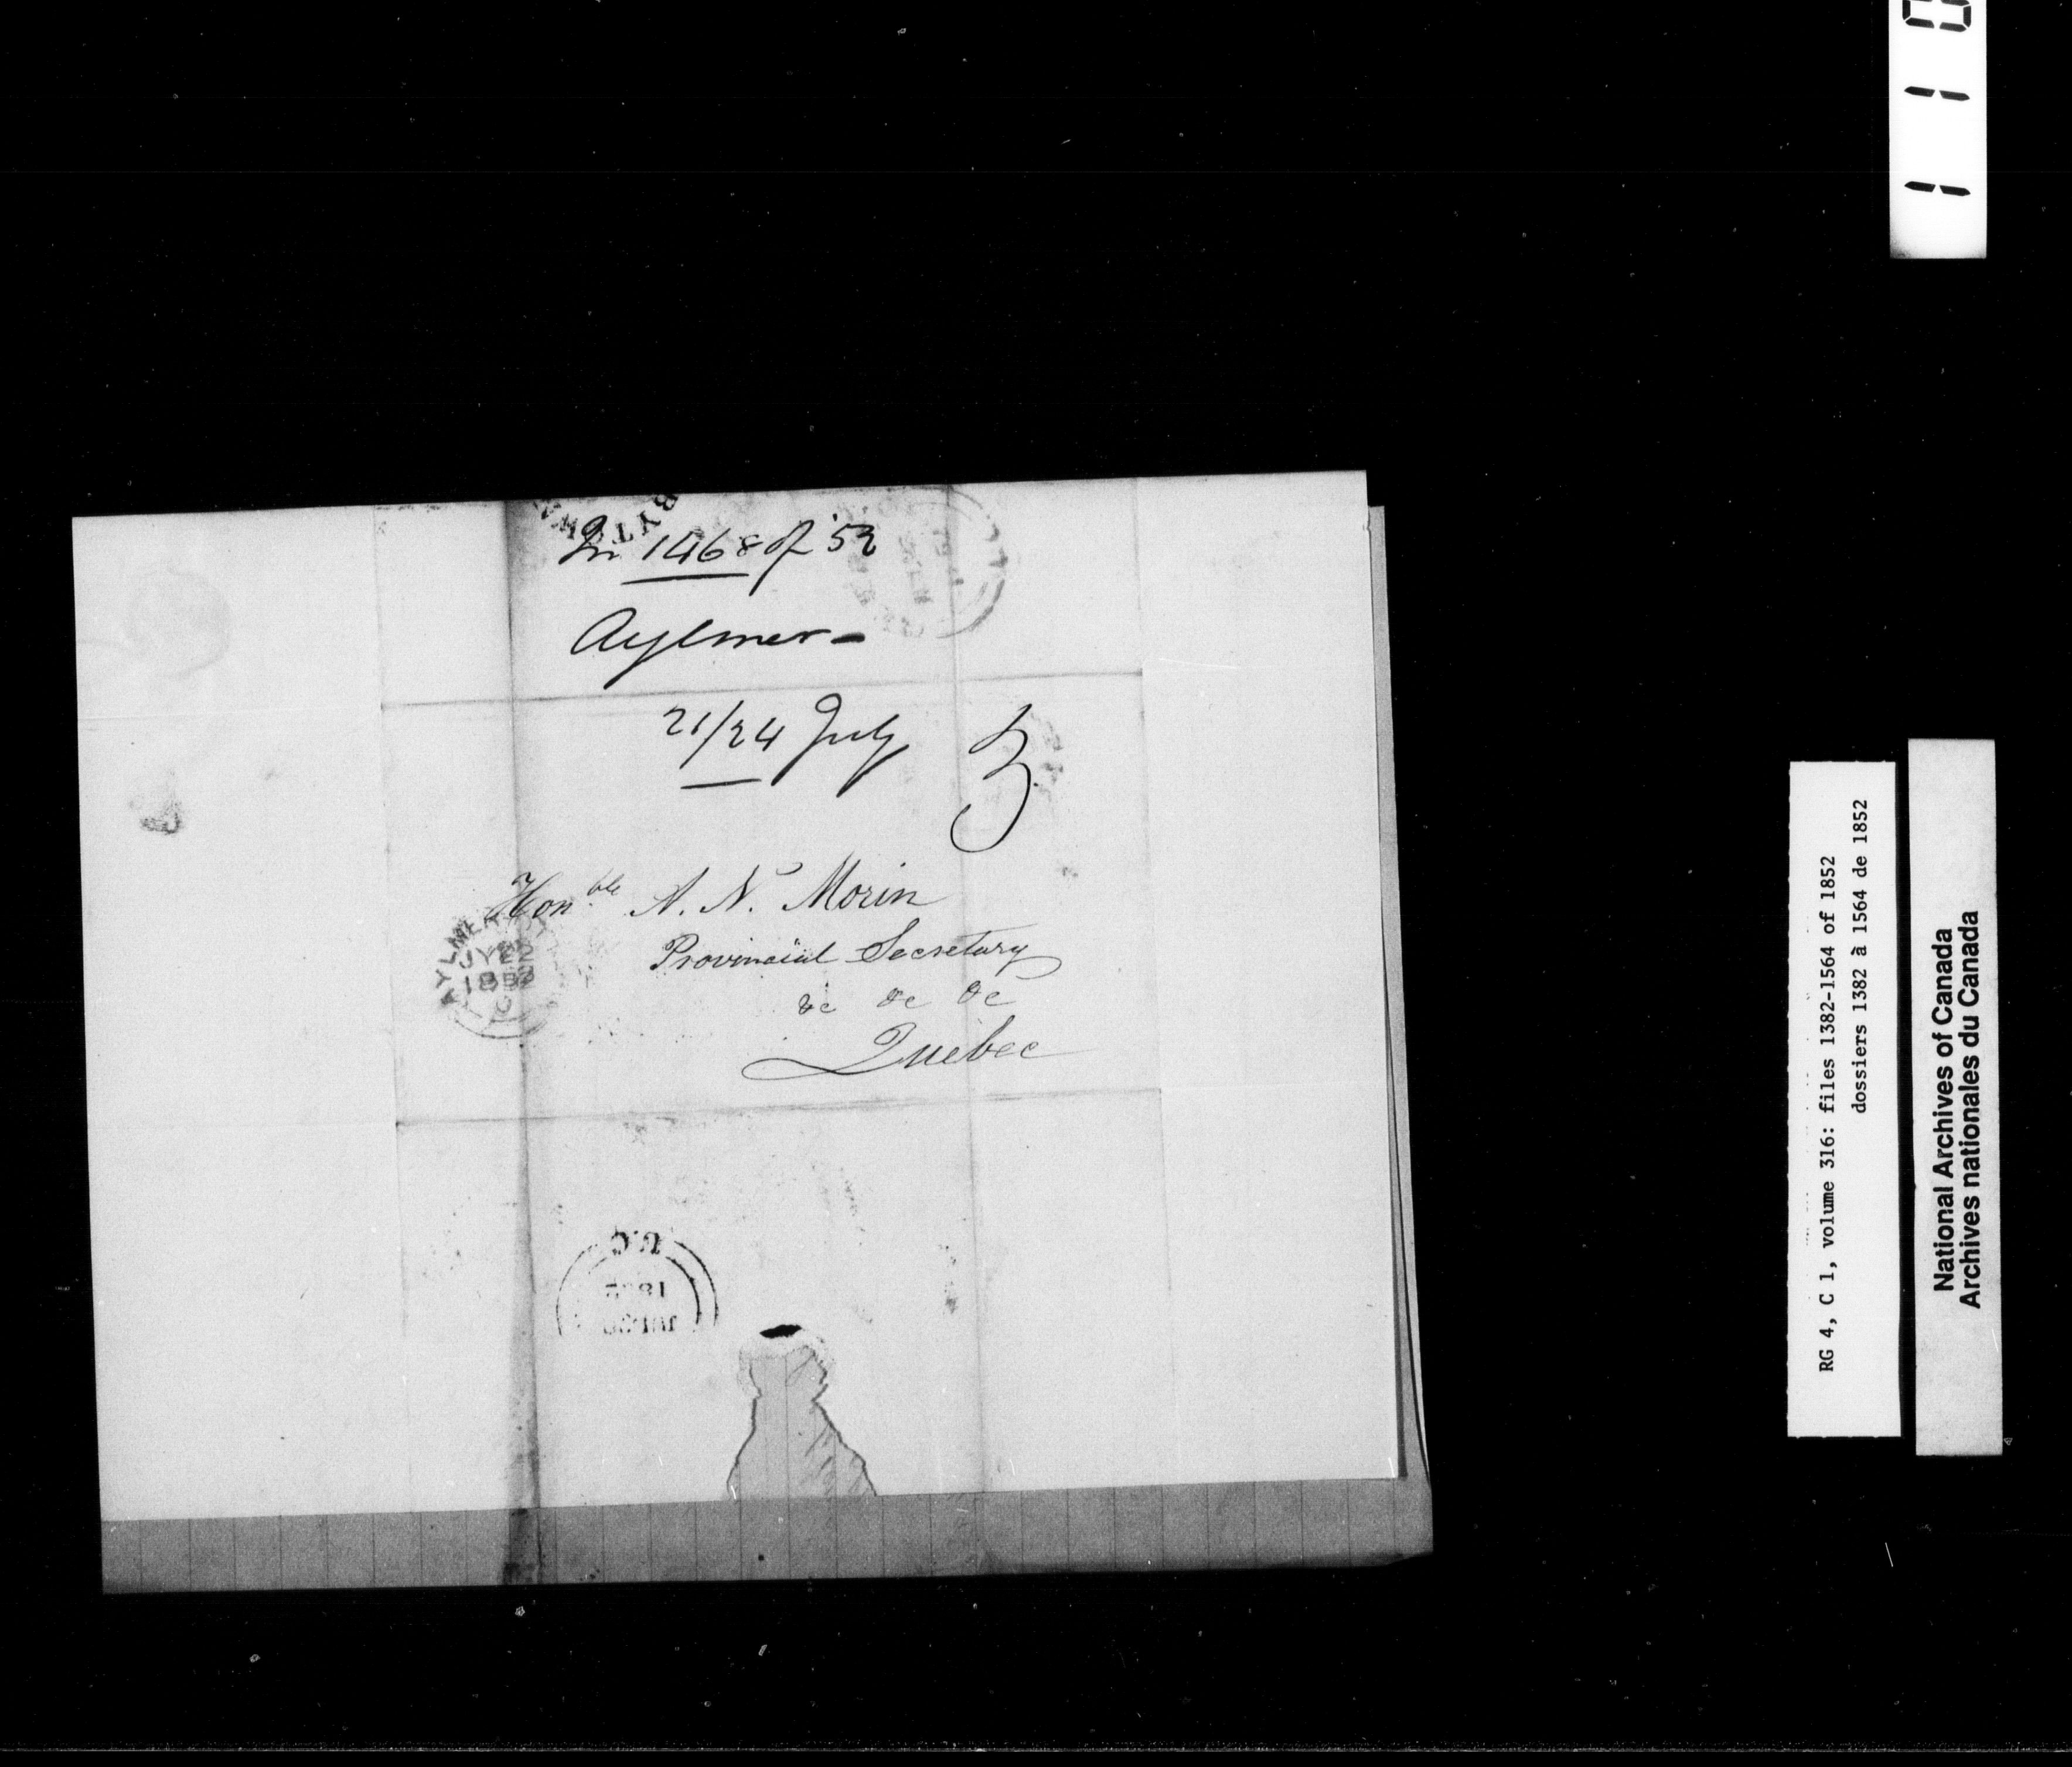 BYTOWN
In 1468 of '52
Aylmer -
21/24 July
3
Honble A. N. Morin
Provincial Secretary
&c &c &c
Quebec
AYLMER
JY 21
1852
U.C
1852
RG 4, C 1, volume 316: files 1382-1564 of 1852
dossiers 1382 à 1564 de 1852
National Archives of Canada
Archives nationales du Canada